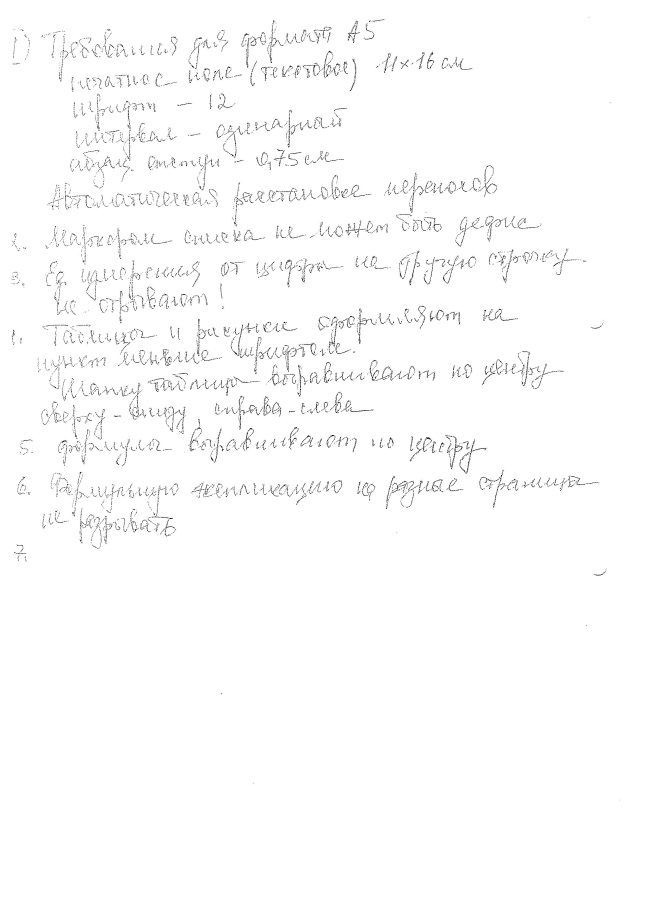 1) Требования для формата А5
печатное поле (текстовое) 11×16 см
шрифт – 12
интервал – одинарный
абзац. отступ – 0,75 см
Автоматическая расстановка переносов
2. Маркером списка не может быть дефис
3. Ед. измерения от цифры на другую строчку
не отрывают!
4. Таблицы и рисунки оформляют на
пункт меньше шрифтом.
Шапку таблицы выравнивают по центру
сверху-снизу, справа-слева
5. Формулы выравнивают по центру
6. Формульную экспликацию на разные страницы
не разрывать
7.